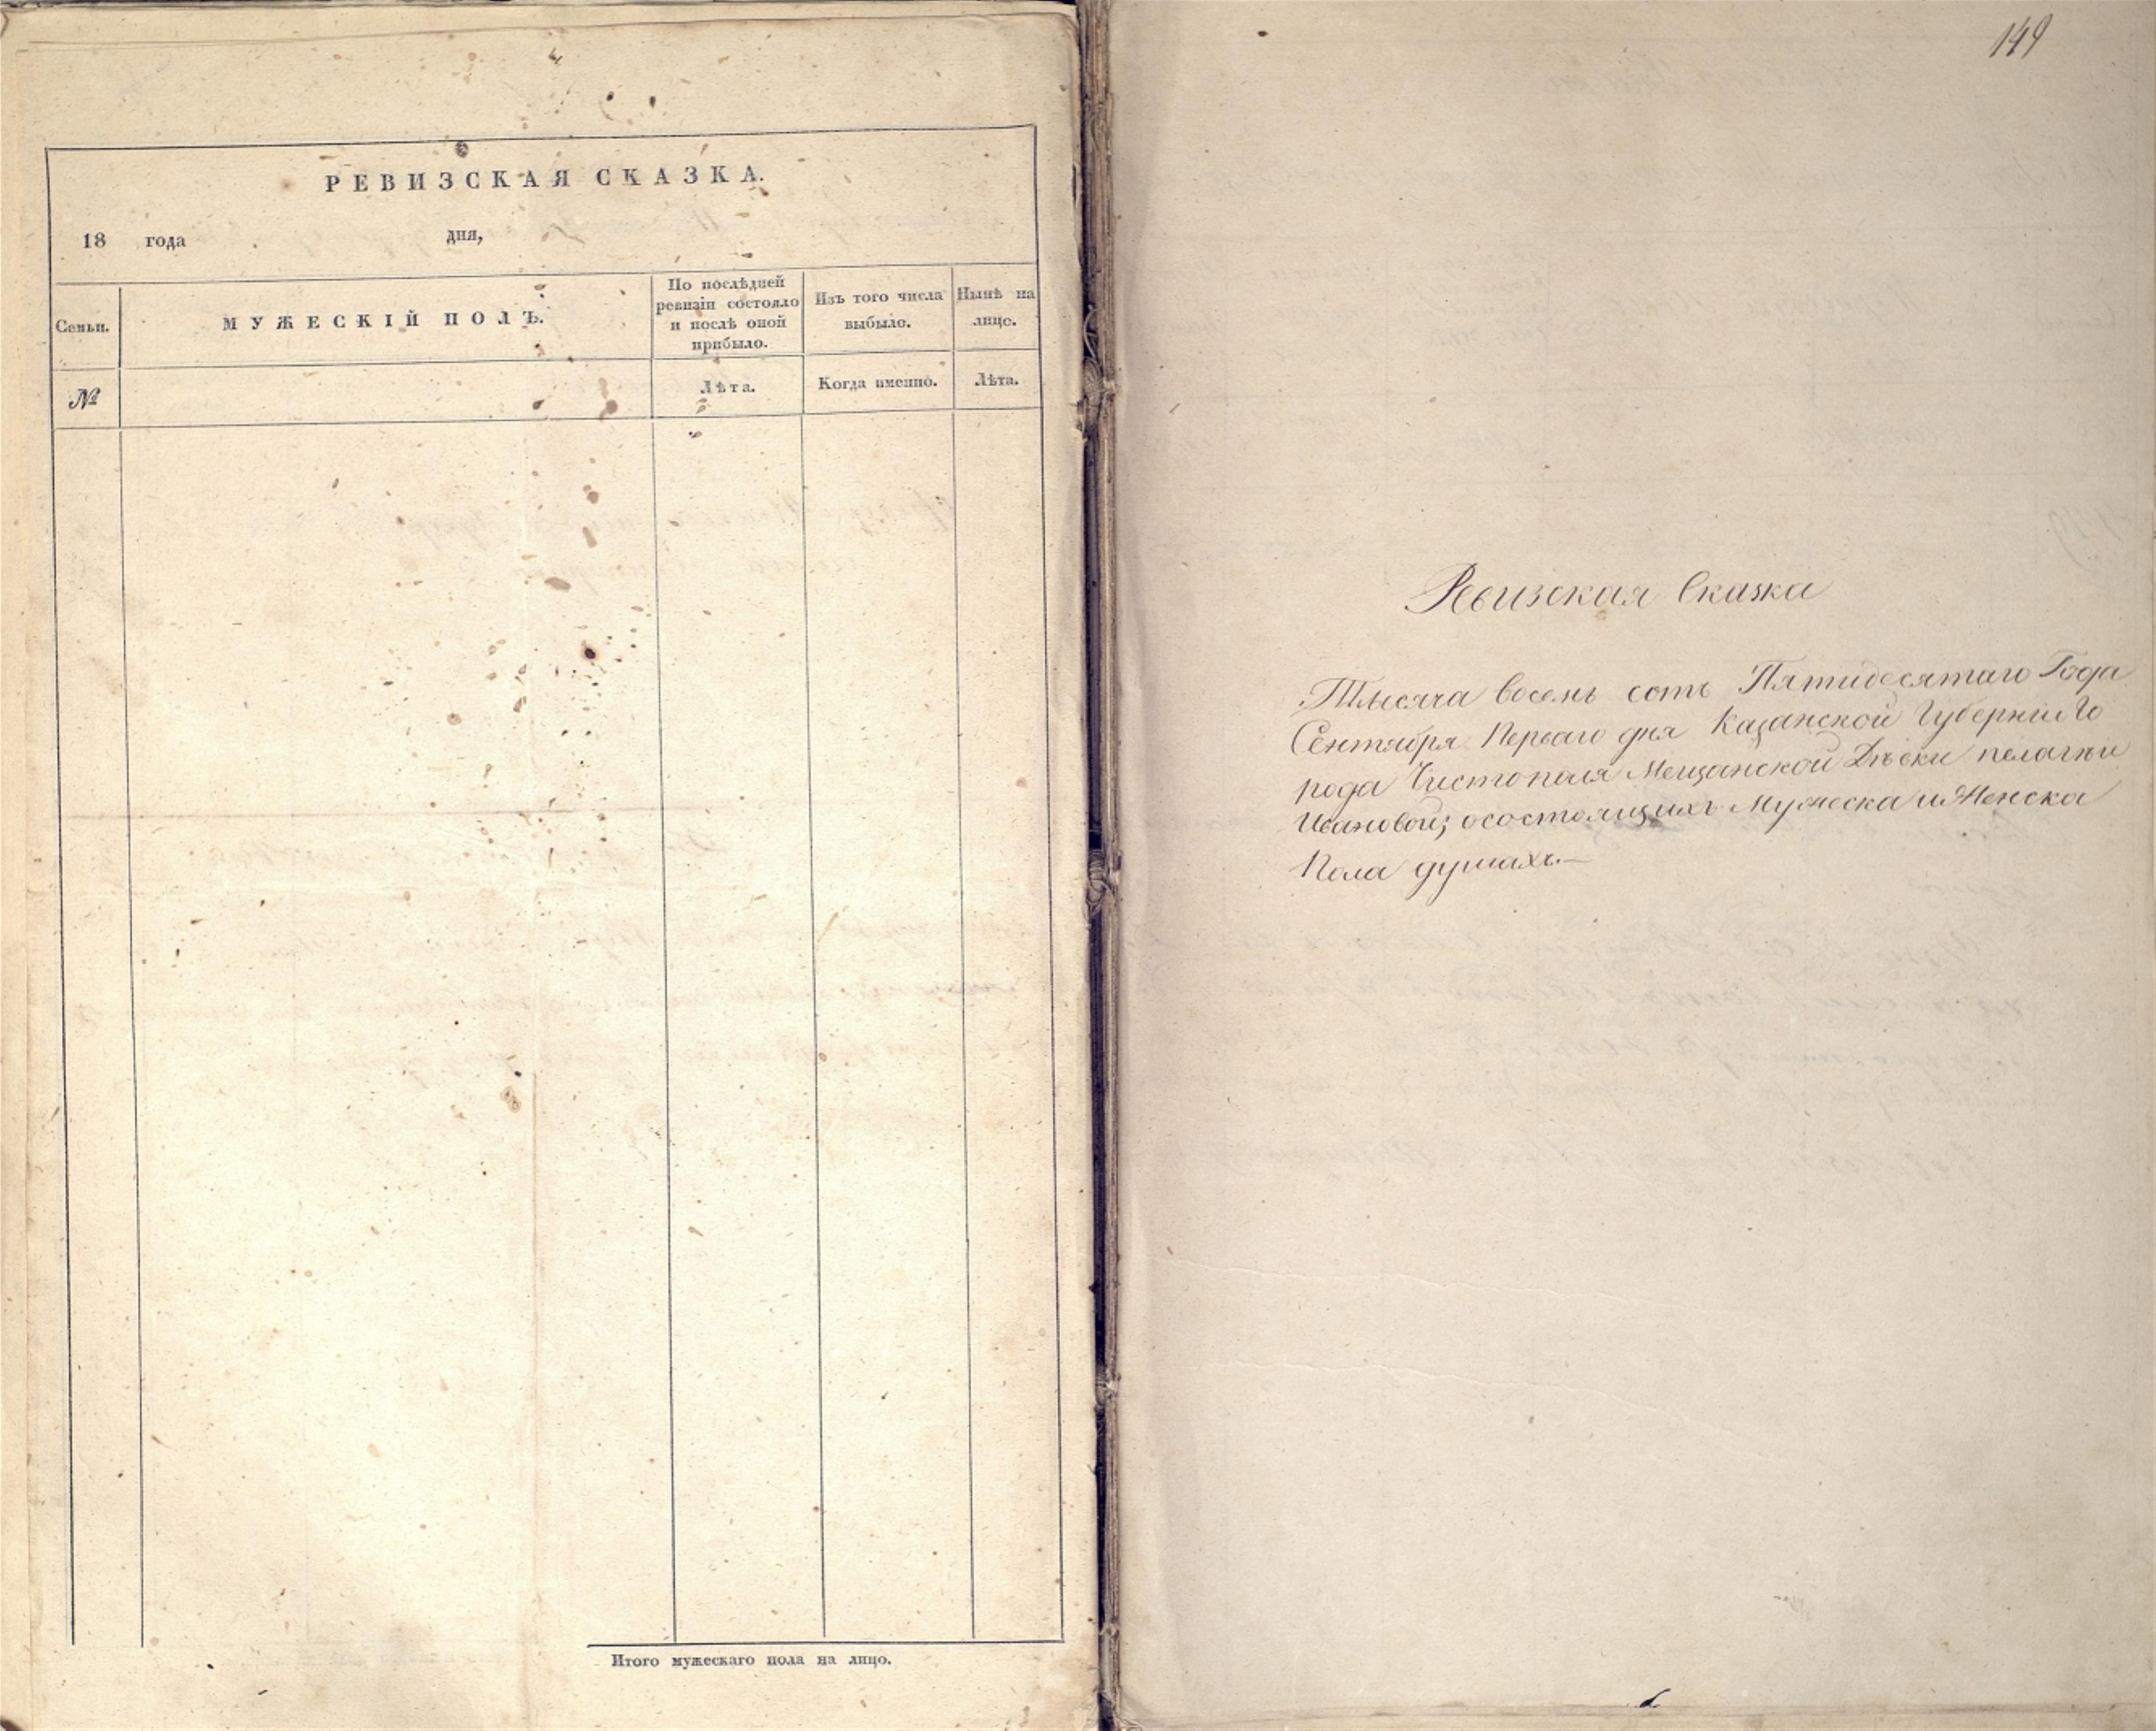 РЕВИЗСКАЯ СКАЗКА.
18 года дня,
Семьи.
МУЖЕСКІЙ ПОЛЪ.
По послѣдней
ревизіи состояло
и послѣ оной
прибыло.
Изъ того числа
выбыло.
Нынѣ на
лицо.
№
Лѣта.
Когда именно.
Лѣта.
Итого мужескаго пола на лицо.
149
Ревизская Сказка
Тысяча восемь сотъ Пятидесятаго Года
Сентября Перваго дня Казанской Губерніи Го
рода Чистополя Мещанской Дѣвки пелагѣи
Ивановой; осостоящихъ Мужеска и Женска
Пола душахъ.—